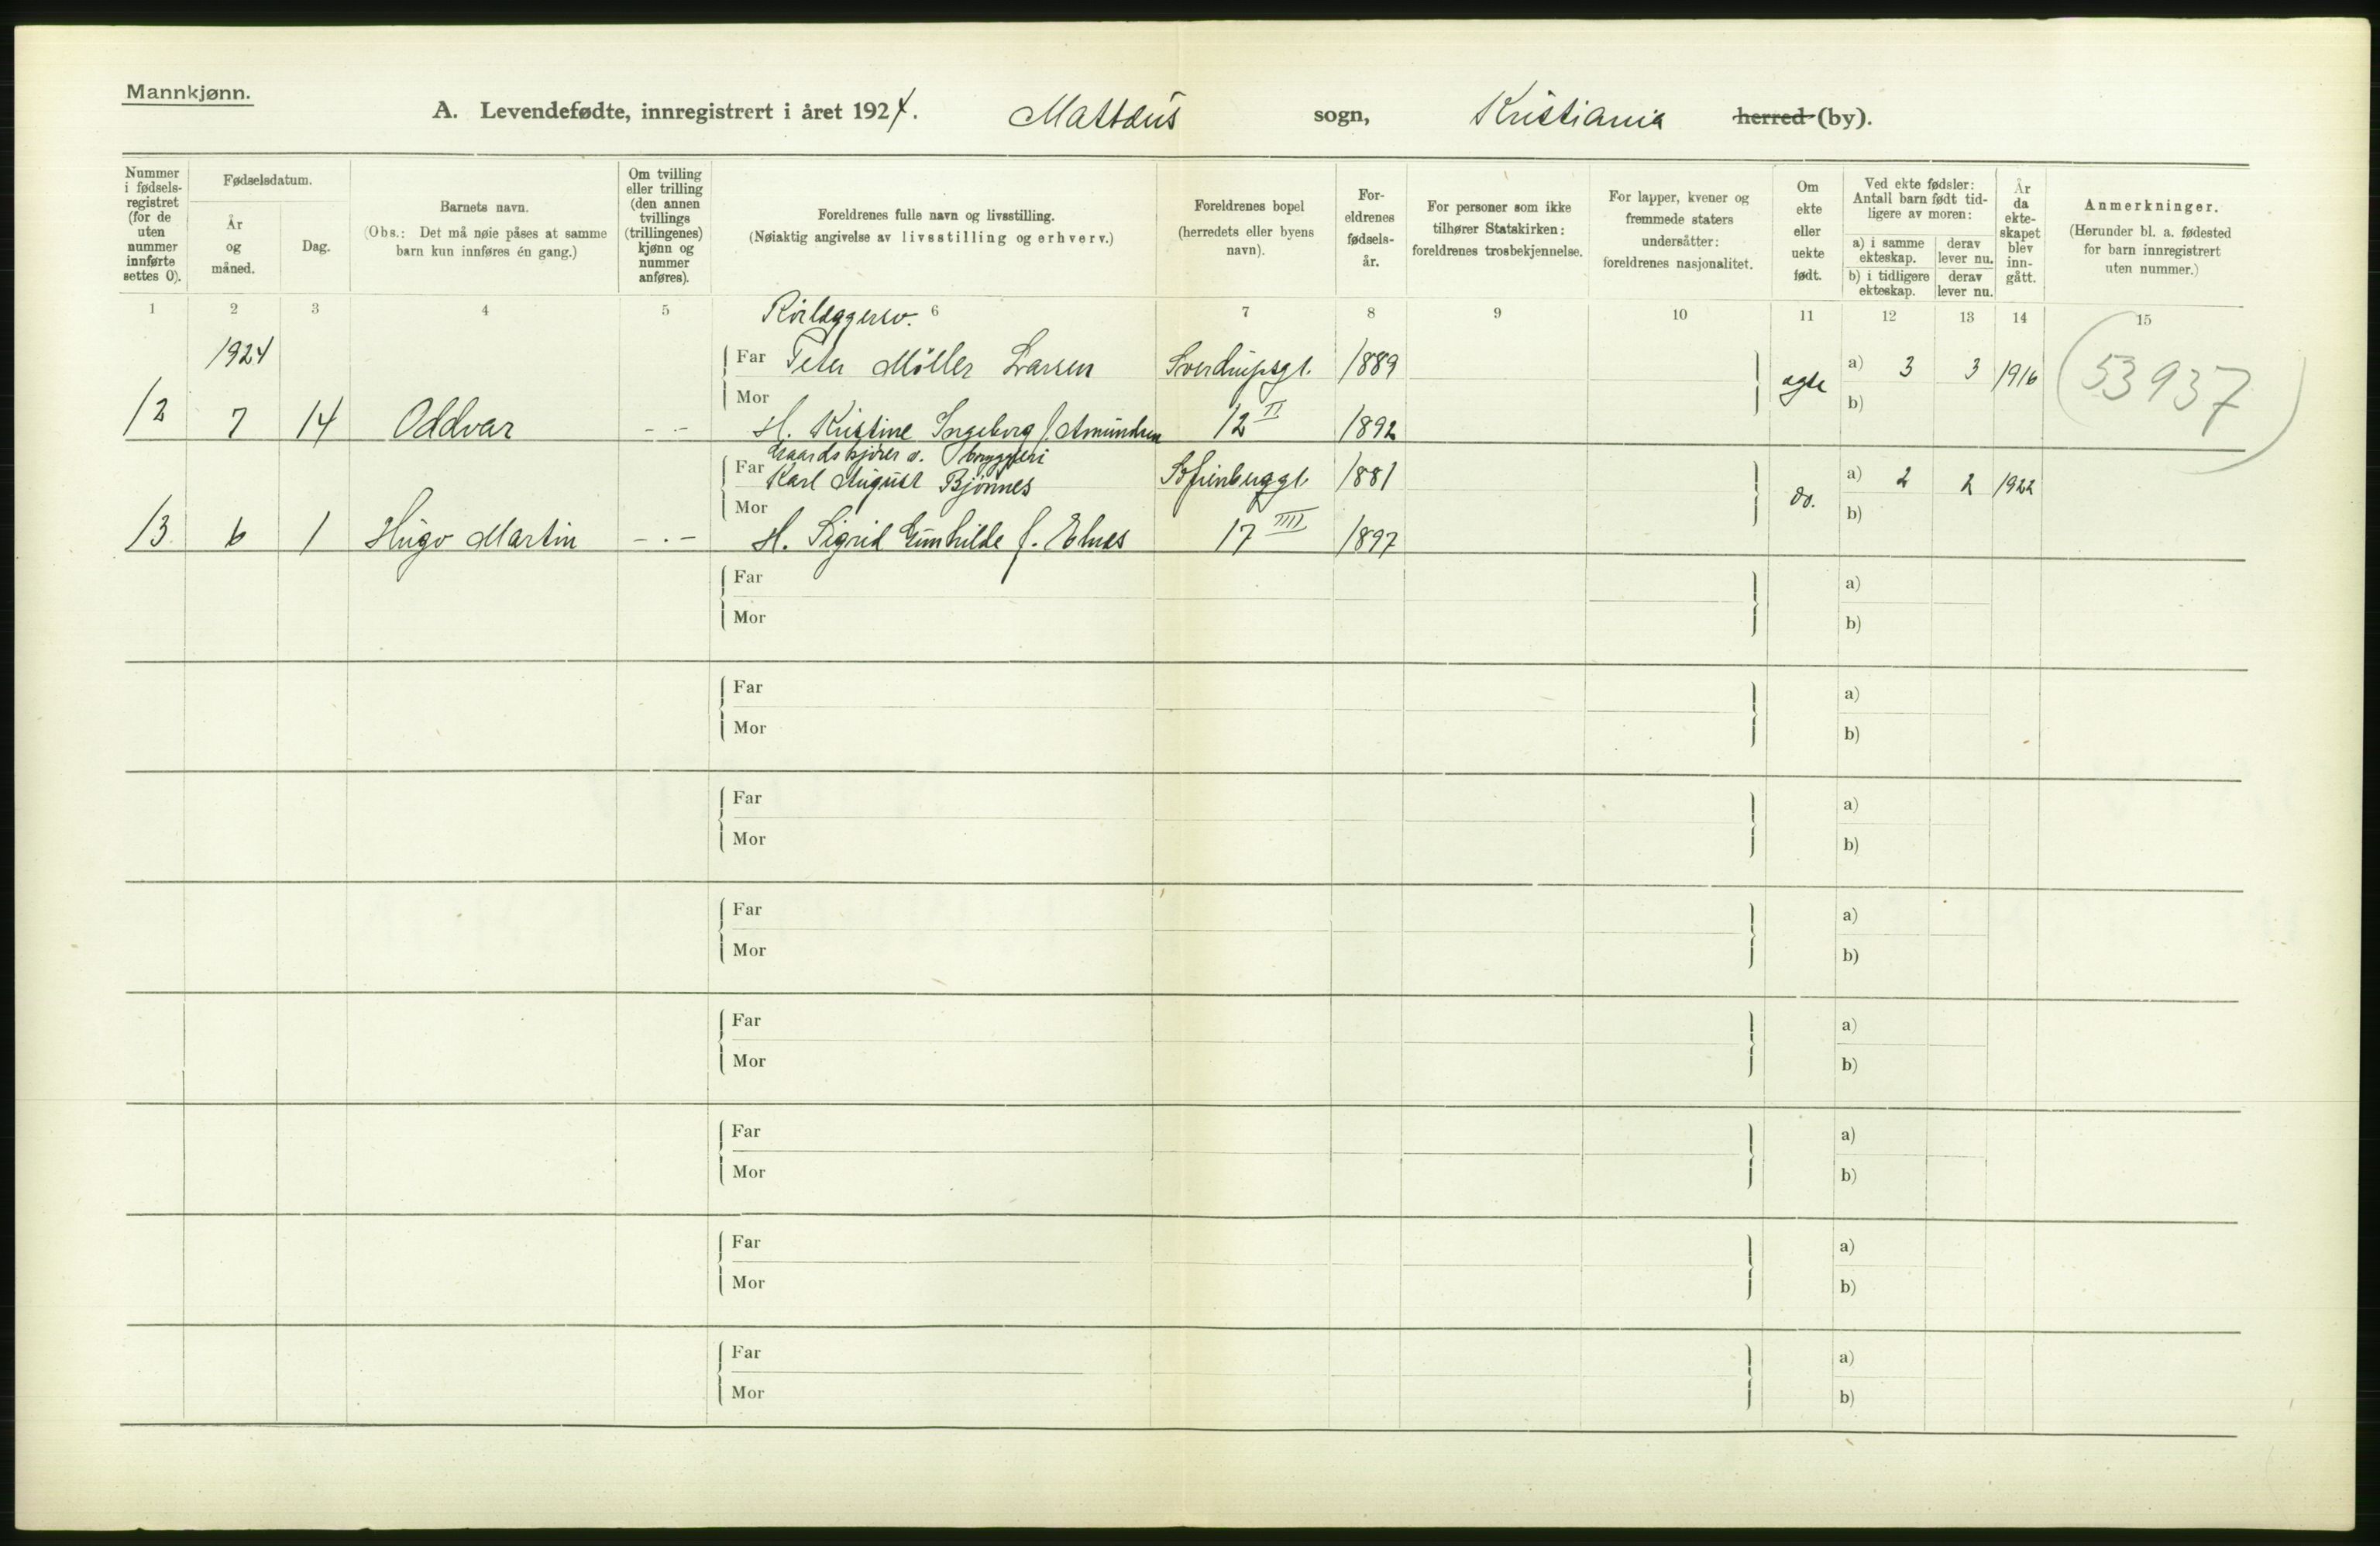 Mannkjønn.
A. Levendefødte, innregistrert i året 1924. Mattæus sogn, Kristiania herred (by).
Nummer i fødselsregistret (for de uten nummer innførte settes 0).
Fødselsdatum.
År og måned.
Dag.
Barnets navn.
(Obs.: Det må nøie påses at samme barn kun innføres én gang.)
Om tvilling eller trilling (den annen tvillings (trillingenes) kjønn og nummer anføres).
Foreldrenes fulle navn og livsstilling.
(Nøiaktig angivelse av livsstilling og erhverv.)
Foreldrenes bopel (herredets eller byens navn).
Foreldrenes fødselsår.
For personer som ikke tilhører Statskirken: foreldrenes trosbekjennelse.
For lapper, kvener og fremmede staters undersåtter: foreldrenes nasjonalitet.
Om ekte eller uekte født.
Ved ekte fødsler: Antall barn født tidligere av moren:
a) i samme ekteskap.
derav lever nu.
b) i tidligere ekteskap.
derav lever nu.
År da ekteskapet blev inngått.
Anmerkninger.
(Herunder bl. a. fødested for barn innregistrert uten nummer.)
1 2 3 4 5 6 7 8 9 10 11 12 13 14 15
Rörlæggersv.
1924 Far Peter Möller Larsen Sverdrupsgt. 1889 a) 3 3 1916 (53937)
12 7 14 Oddvar - . - Mor H. Kristine Ingeborg f. Amundsen 12 II 1892 ægte b)
Gaardskjörer v. bryggeri
Far Karl August Bjönnes Sofienberggt. 1881 a) 2 2 1922
13 6 1 Hugo Martin - . - Mor H. Sigrid Gunhilde f. 17 IIII 1897 do. b)
Far a)
Mor b)
Far a)
Mor b)
Far a)
Mor b)
Far a)
Mor b)
Far a)
Mor b)
Far a)
Mor b)
Far a)
Mor b)
Far a)
Mor b)